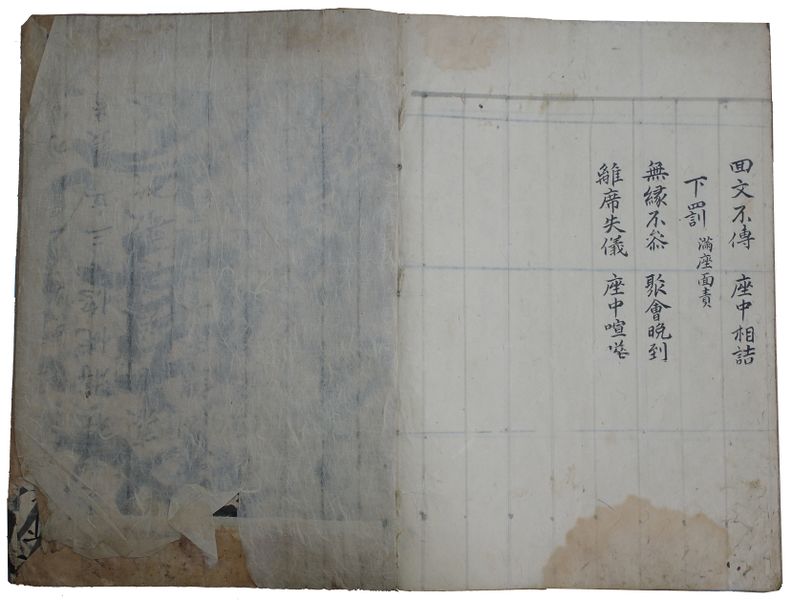 回文不傳 座中相詰
下罰 滿座面責
無緣不叅 聚會晩到
離席失儀 座中喧嗌